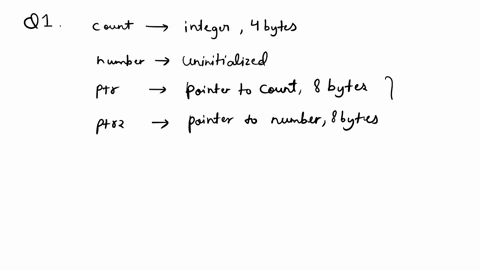 Q1. count → integer, 4 bytes
number → uninitialized
ptr → pointer to count, 8 bytes }
ptr2 → pointer to number, 8 bytes